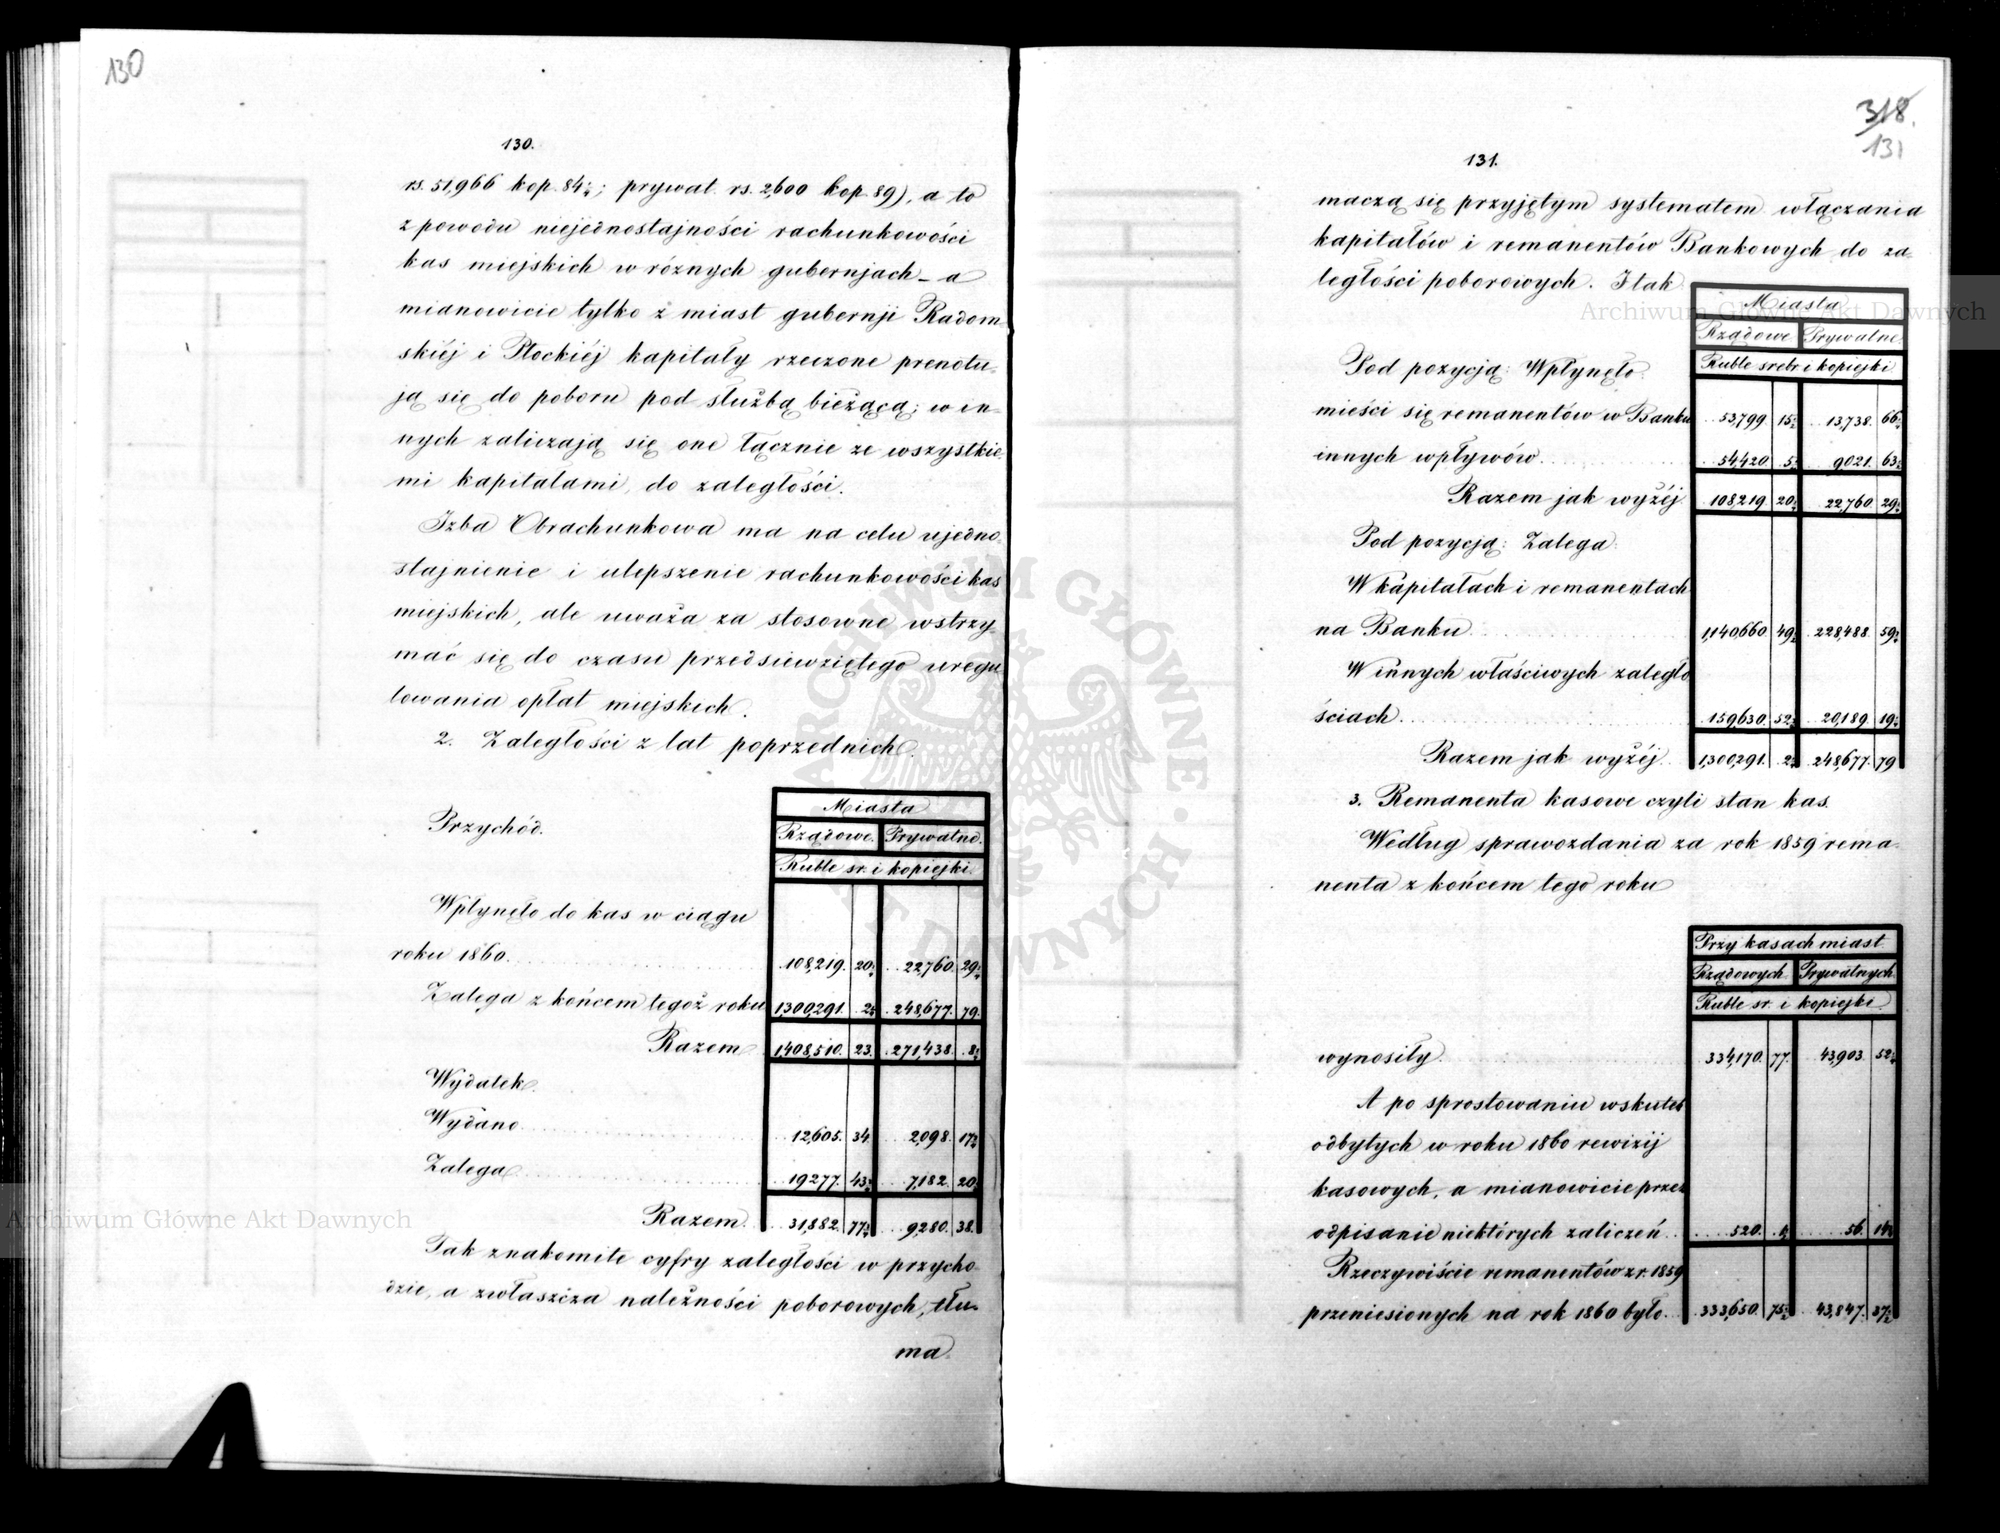 130
130.
rs. 51,966 kop. 84½; prywat. rs. 2,600 kop. 89), a to
z powodu niejednostajności rachunkowości
kas miejskich w różnych gubernjach - a
mianowicie tylko z miast gubernji Radom-
skiéj i Płockiéj kapitały rzeczone prenotu-
ją się do poboru pod służbą bieżącą; w in-
nych zaliczają się one łącznie ze wszystkie-
mi kapitałami, do zaległości.
Izba Obrachunkowa ma na celu ujedno-
stajnienie i ulepszenie rachunkowości kas
miejskich, ale uważa za stosowne wstrzy-
mać się do czasu przedsięwziętego uregu-
lowania opłat miejskich.
2. Zaległości z lat poprzednich.
Miasta
Przychód.
Rządowe. Prywatne.
Ruble sr. i kopiejki.
Wpłynęło do kas w ciągu
roku 1860. 108,219. 20 22,760. 29
Zalega z końcem tegoż roku 1,300,291. 2 248,677. 79.
Razem 1,408,510. 23. 271,438. 8
Wydatek.
Wydano 12,605. 34 2,098. 17
Zalega 19277. 43 7,182. 20
Razem. 31,882. 77 9,280. 38.
Tak znakomite cyfry zaległości w przycho-
dzie, a zwłaszcza należności poborowych, tłu-
ma
318.
131
131.
maczą się przyjętym systematem włączania
kapitałów i remanentów Bankowych do za-
ległości poborowych. I tak
Miasta
Rządowe Prywatne.
Ruble srebr i kopiejki
Pod pozycją: Wpłynęło:
mieści się remanentów w Banku 53,799. 15 13,738. 66
innych wpływów 54420. 5 9021. 63
Razem jak wyżéj 108219 20 22,760. 29
Pod pozycją: Zalega:
W kapitałach i remanentach
na Banku 1,140660. 49 228,488. 59
W innych właściwych zaległo
ściach. 159,630. 52 20,189. 19
Razem jak wyżéj 1,300,291. 2 248,677. 79
3. Remanenta kasowe czyli stan kas.
Według sprawozdania za rok 1859 rema-
nenta z końcem tego roku
Przy kasach miast
Rządowych Prywatnych
Ruble sr. i kopiejki
wynosiły. 334,170. 77. 43,903. 52
A po sprostowaniu wskutek
odbytych w roku 1860 rewizij
kasowych, a mianowicie przez
odpisanie niektórych zaliczeń 520. 56. 14
Rzeczywiście remanentów z r. 1859
przeniesionych na rok 1860 było. 333,650. 75 43,847. 37
Archiwum Główne Akt Dawnych
Archiwum Główne Akt Dawnych
ARCHIWUM GŁÓWNE AKT DAWNYCH